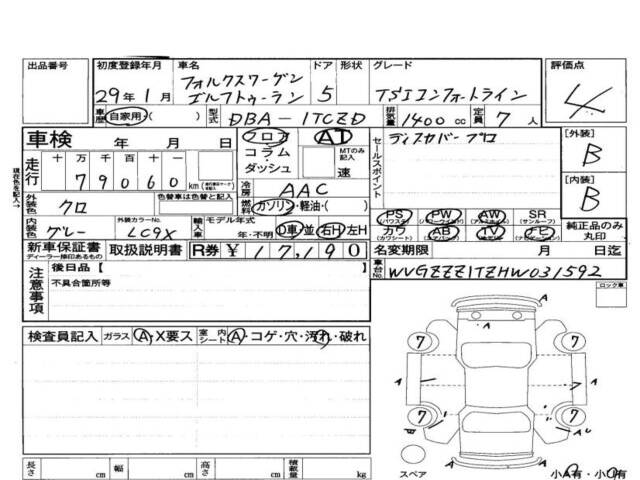 出品番号 初度登録年月 車名 ドア 形状 グレード 評価点
29年1月 フォルクスワーゲン ゴルフトゥーラン 5 TSIコンフォートライン 4
車歴 自家用・( ) 型式 DBA-1TCZD 排気量 1400cc 定員 7人
車検 年 月 日 フロア AT セールスポイント ディスカバープロ [外装]
コラム・ダッシュ MTのみ記入 速 B
走行 十万 万 千 百 十 一
79060 km
冷房 AAC [内装]
現在色を記入→ 外装色 クロ 色替車は色替と記入 燃料 ガソリン・軽油・( ) B
PS PW AW SR
(パワステ) (パワーウインドウ) (アルミホイル) (サンルーフ)
内装色 グレー 外装カラーNo. LC9X 輸入車 モデル年式 年・不明 D車 並 右H 左H カワ AB TV 純正品のみ丸印
(カワシート) (エアバック)
新車保証書 取扱説明書 R券 ¥17,190 名変期限 月 日迄
ディーラー捺印あるもの
車台No. WVGZZZ1TZHW031592
注意事項 後日品【
不具合箇所等
ロック車
検査員記入 ガラス A・X要ス 室内シート A・コゲ・穴・汚れ・破れ
A
7 7
A A
7 7
A
A
スペア 小A有・小U有
長さ cm 幅 cm 高さ cm 積載量 kg